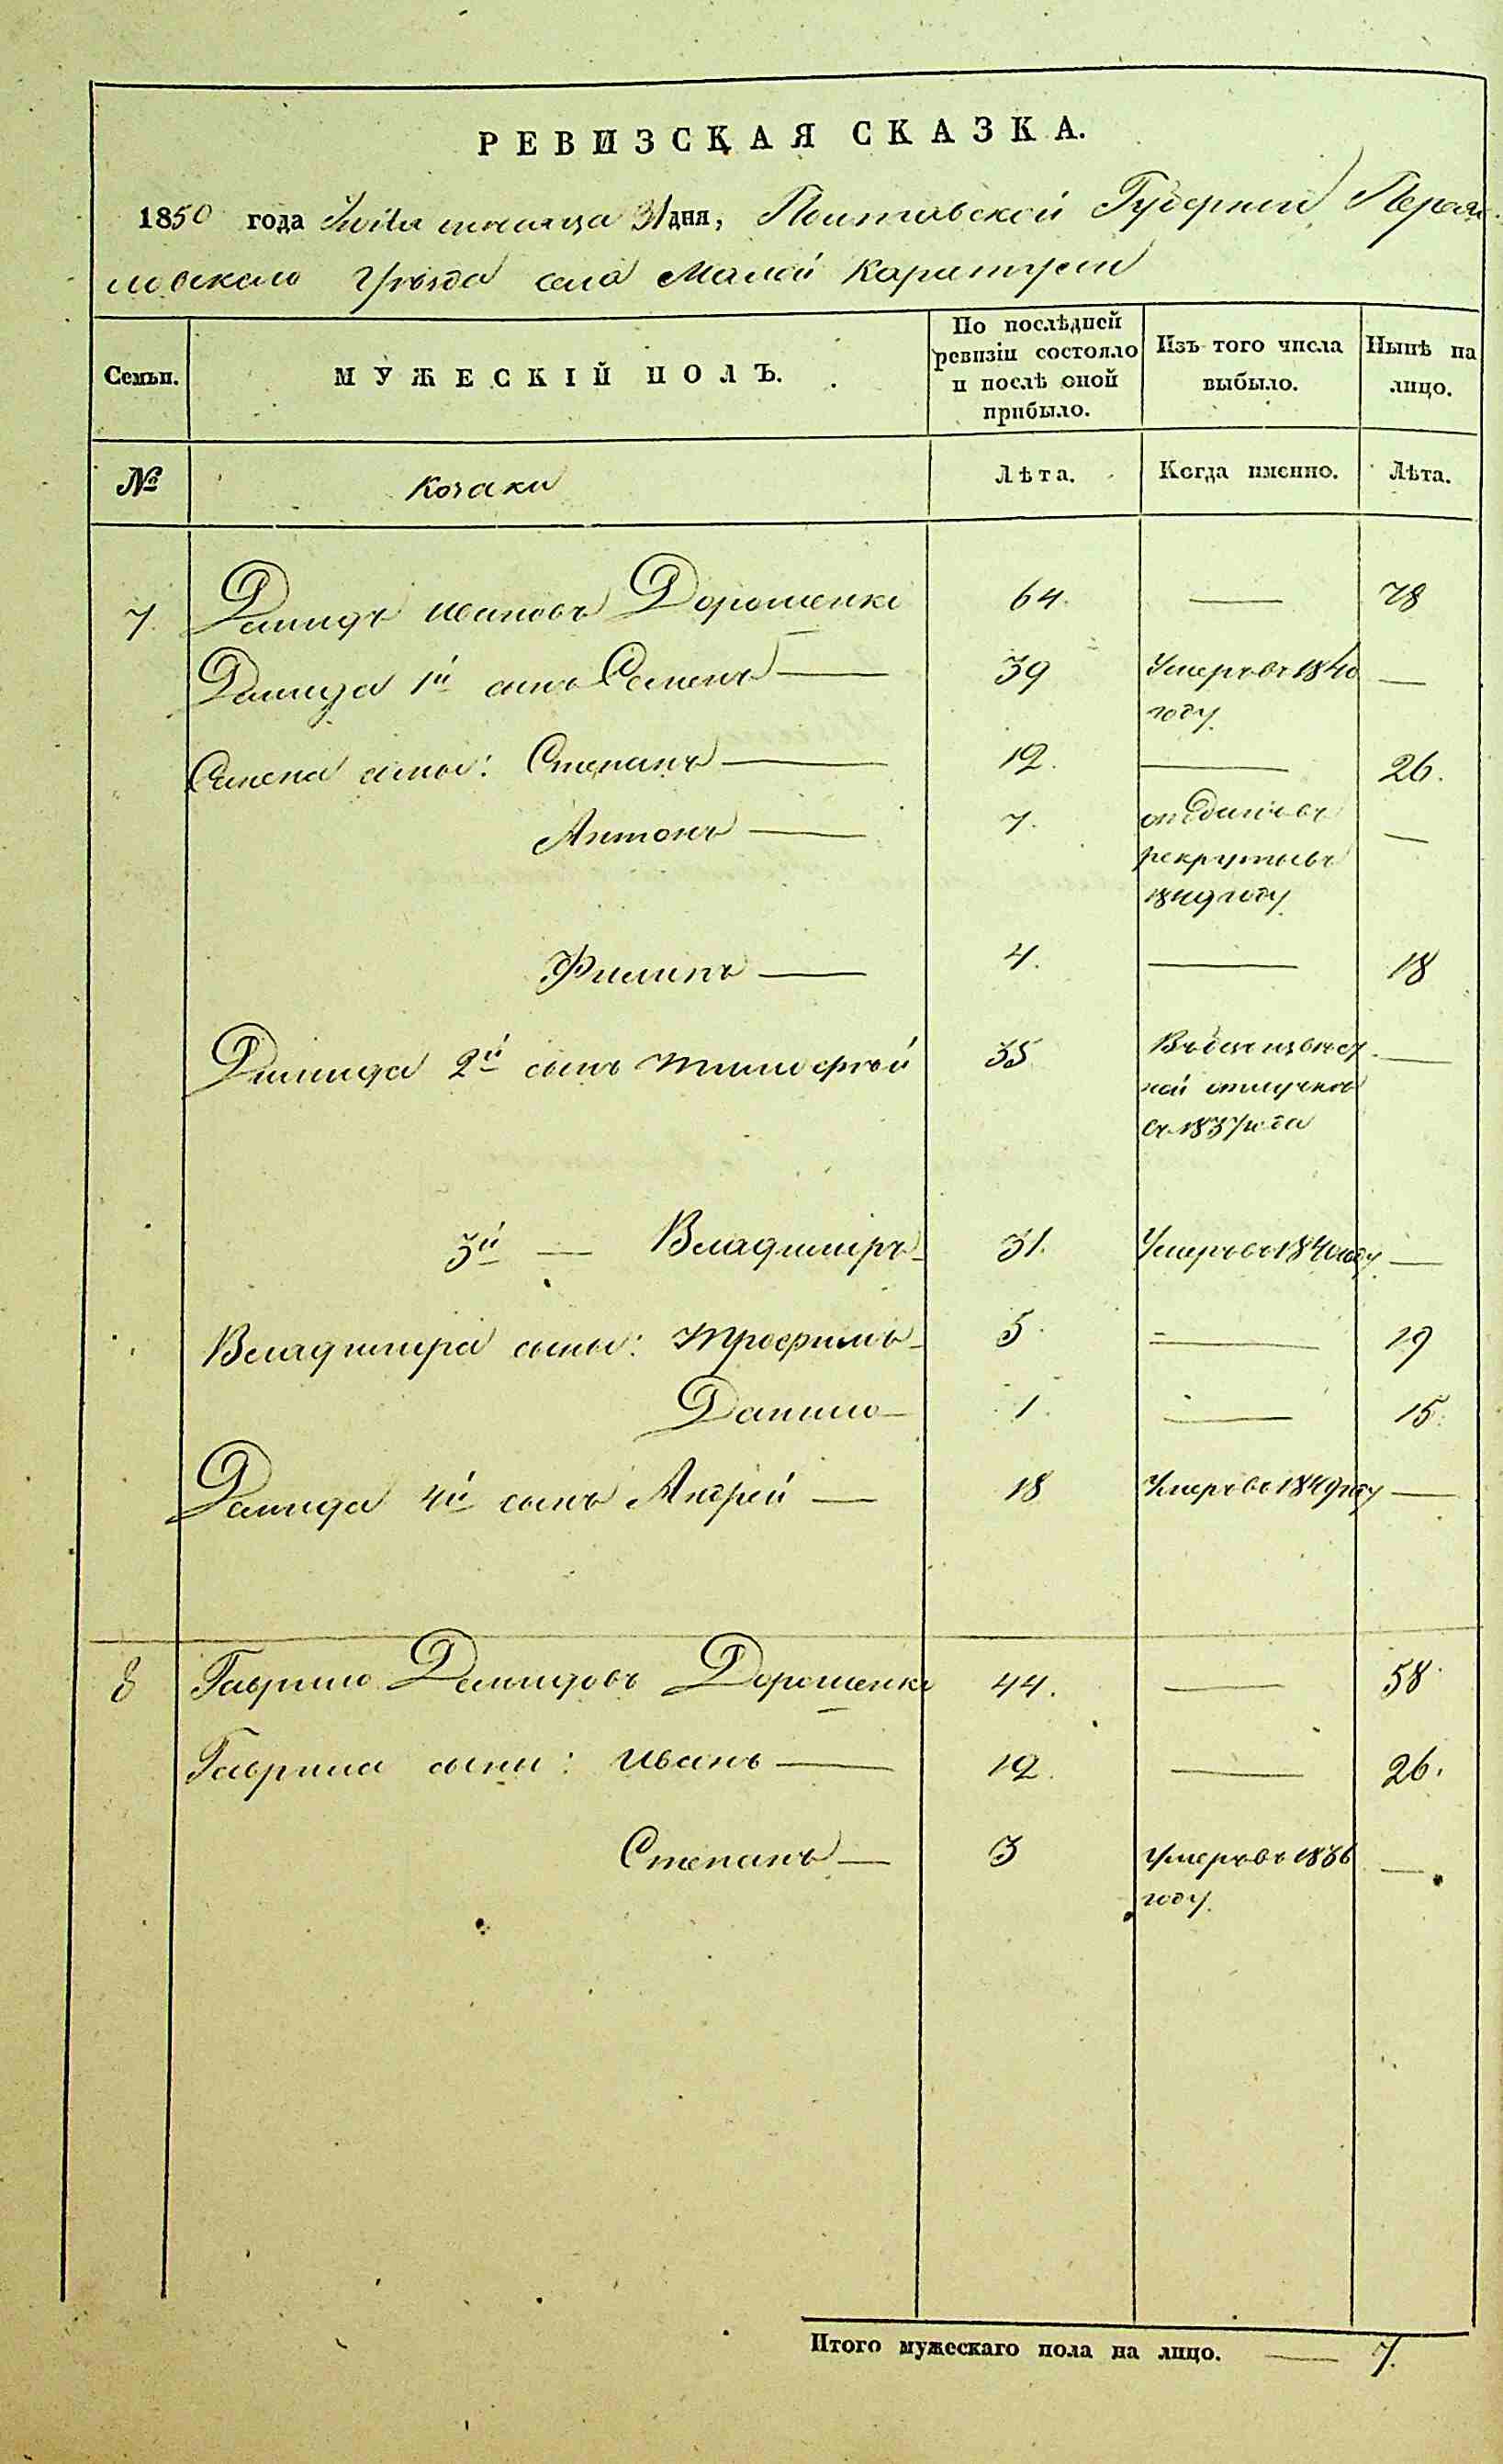 РЕВИЗСКАЯ СКАЗКА.
1850 года Июля месяца 31 дня, Полтавской Губернии Переяс-
ловского Уѣзда села Малой Каратули
Семьи.
МУЖЕСКІЙ ПОЛЪ.
По послѣдней ревизіи состояло и послѣ оной прибыло.
Изъ того числа выбыло.
Нынѣ на лицо.
№ Козаки Лѣта. Когда именно. Лѣта.
7. Демидъ Ивановъ Дорошенко 64. — 78
Демида 1й сынъ Семенъ — 39 Умеръ въ 1840 году. —
Семена сыны: Степанъ — 12. — 26.
Антонъ — 7. отданъ въ рекруты въ 1849 году. —
Филипъ — 4. — 18
Демида 2й сынъ Тимофѣй 35 Въ безъизвѣст-
ной отлучкѣ
съ 1837 года —
3й — Владимиръ 31. Умеръ въ 1840 году. —
Владимира сыны: Трофимъ 5. — 19
Данило 1. — 15.
Демида 4й сынъ Андрей — 18 Умеръ въ 1849 году —
8 Гаврило Демидовъ Дорошенко 44. — 58
Гаврила сыны: Иванъ — 12. — 26.
Степанъ — 3 Умеръ въ 1836 году. —
Итого мужескаго пола на лицо. — 7.